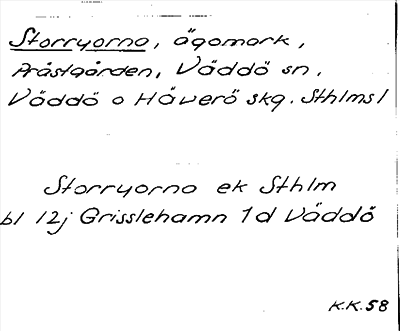 Storryorna, ägomark,
Prästgården, Väddö sn.
Väddö o Häverö skg. Sthlms l
Storryorna ek Sthlm
bl 12j Grisslehamn 1d Väddö
K.K. 58